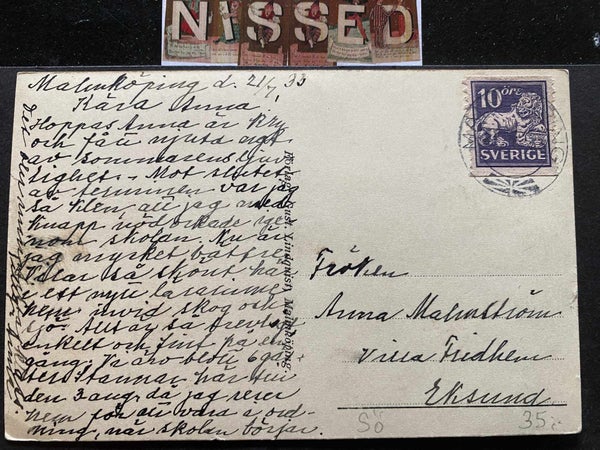 NISSED
Malmköping d. 21/7, 33
Kära Anna!
Hoppas Anna är kry
och får njuta rikt
av sommarens
lighet. Mot slutet
av terminen var jag
så klen, att jag med
knapp nöd orkade ige-
nom skolan. Nu är
jag mycket bättre.
Vilar så skönt här
i ett nytt
hem invid skog och
sjö. Allt är så trevligt,
enkelt och fint på en
gång. Vi äro blott 6 gäs-
ter. Stannar här till
den 3 aug. då jag reser
hem för att vara i ord-
ning, när skolan börjar.
Förlag: Gust. Lindquist, Malmköping.
10 ÖRE
SVERIGE
Fröken
Anna Malmström
Villa Fridhem
Eksund
Sö
35:-